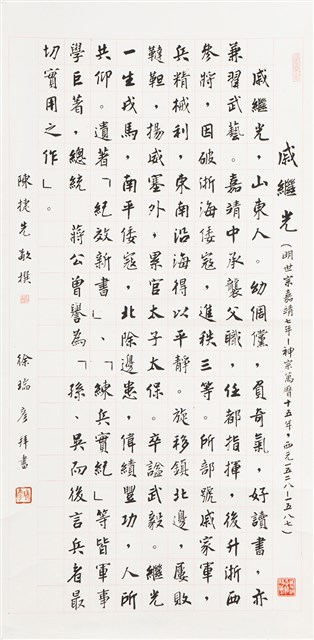 戚繼光（明世宗嘉靖七年－神宗萬曆十五年，西元一五二八－一五八七）
戚繼光，山東人。幼倜儻，負奇氣，好讀書，亦
兼習武藝。嘉靖中承襲父職，任都指揮，後升浙西
參將，因破浙海倭寇，進秩三等。所部號戚家軍，
兵精械利，東南沿海得以平靜。旋移鎮北邊，屢敗
韃靼，揚威塞外，累官太子太保。卒諡武毅。繼光
一生戎馬，南平倭寇，北除邊患，偉績豐功，人所
共仰。遺著「紀效新書」、「練兵實紀」等皆軍事
學巨著，總統　蔣公曾譽為「孫、吳而後言兵者最
切實用之作」。
陳捷先敬撰
徐瑞彥拜書